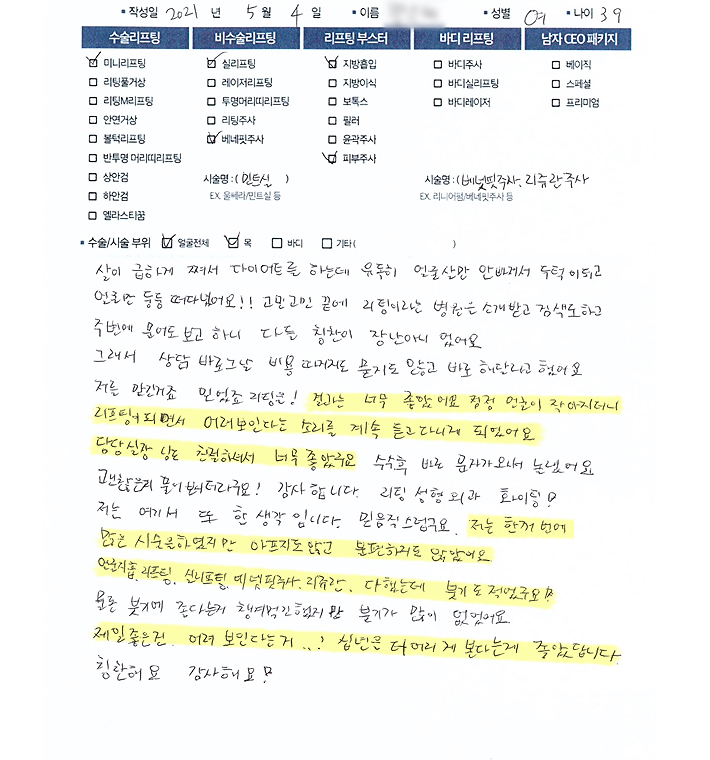 ▪ 작성일 2021 년 5 월 4 일 ▪ 이름 ▪ 성별 여 ▪ 나이 39
수술리프팅 비수술리프팅 리프팅 부스터 바디 리프팅 남자 CEO 패키지
미니리프팅 실리프팅 지방흡입 바디주사 베이직
리팅풀거상 레이저리프팅 지방이식 바디실리프팅 스페셜
리팅M리프팅 투명머리띠리프팅 보톡스 바디레이저 프리미엄
안면거상 리팅주사 필러
볼턱리프팅 베네핏주사 윤곽주사
반투명 머리띠리프팅 피부주사
상안검 시술명 : ( 민트실 ) 시술명 : ( 베넷핏주사, 리쥬란주사
하안검 EX. 울쎄라/민트실 등 EX. 리니어펌/베네핏주사 등
엘라스티꿈
▪ 수술/시술 부위 얼굴전체 목 바디 기타( )
살이 급하게 쪄서 다이어트를 하는데 유독히 얼굴살만 안빠져서 두턱이되고
얼굴만 둥둥 떠다녔어요!! 고민고민 끝에 리팅이라는 병원을 소개받고 검색도하고
주변에 물어도 보고 하니 다들 칭찬이 장난아니 었어요
그래서 상담 바로그날 비용 따지지도 묻지도 않고 바로 해달라고 했어요
저를 맡긴거죠 믿었죠 리팅을! 결과는 너무 좋았어요 점점 얼굴이 작아지더니
리프팅이 되면서 어려보인다는 소리를 계속 듣고다니게 되었어요
담당실장 님은 친절하셔서 너무 좋았구요 수술후 바로 문자가와서 놀랬어요
괜찮은지 물어 봐주더라구요! 감사 합니다. 리팅 성형외과 화이팅!
저는 여기서 또 한 생각 입니다. 믿음직스럽구요. 저는 한꺼번에
많은 시술을하였지만 아프지도않고 불편하지도 않았어요
얼굴지흡, 리프팅, 실리프팅, 베넷핏주사, 리쥬란, 다했는데 붓기도 적었구요!
물론 붓기에 좋다는거 챙겨먹긴했지만 붓기가 많이 없었어요
제일좋은건. 어려 보인다는거 ..! 십년은 더 어리게 본다는게 좋았답니다.
칭찬해요 감사해요!